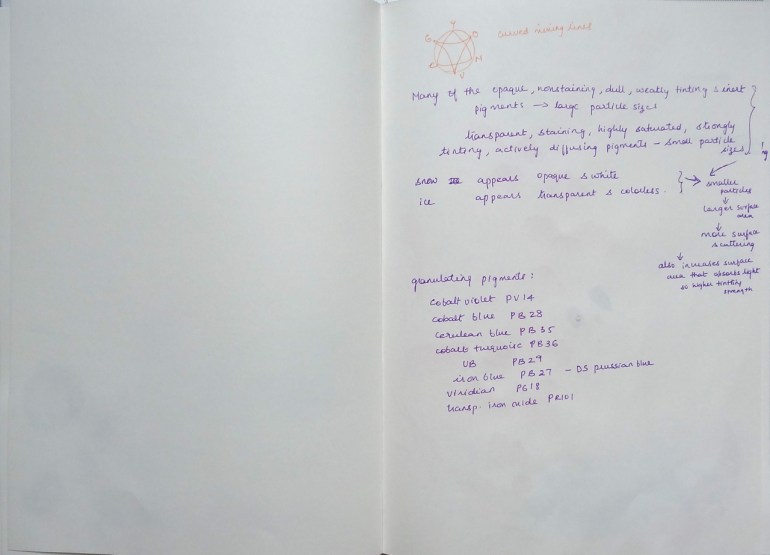 Y
G O
C M
V
curved mixing lines
Many of the opaque, nonstaining, dull, weakly tinting & inert
pigments → large particle sizes
transparent, staining, highly saturated, strongly
tinting, actively diffusing pigments - small particle
sizes
snow appears opaque & white
ice appears transparent & colorless.
smaller
particles
↓
larger surface
area
↓
more surface
scattering
↓
also increases surface
area that absorbs light
so higher tinting
strength
granulating pigments:
cobalt violet PV14
cobalt blue PB28
cerulean blue PB35
cobalt turquoise PB36
UB PB29
iron blue PB27 - DS prussian blue
viridian PG18
transp. iron oxide PR101